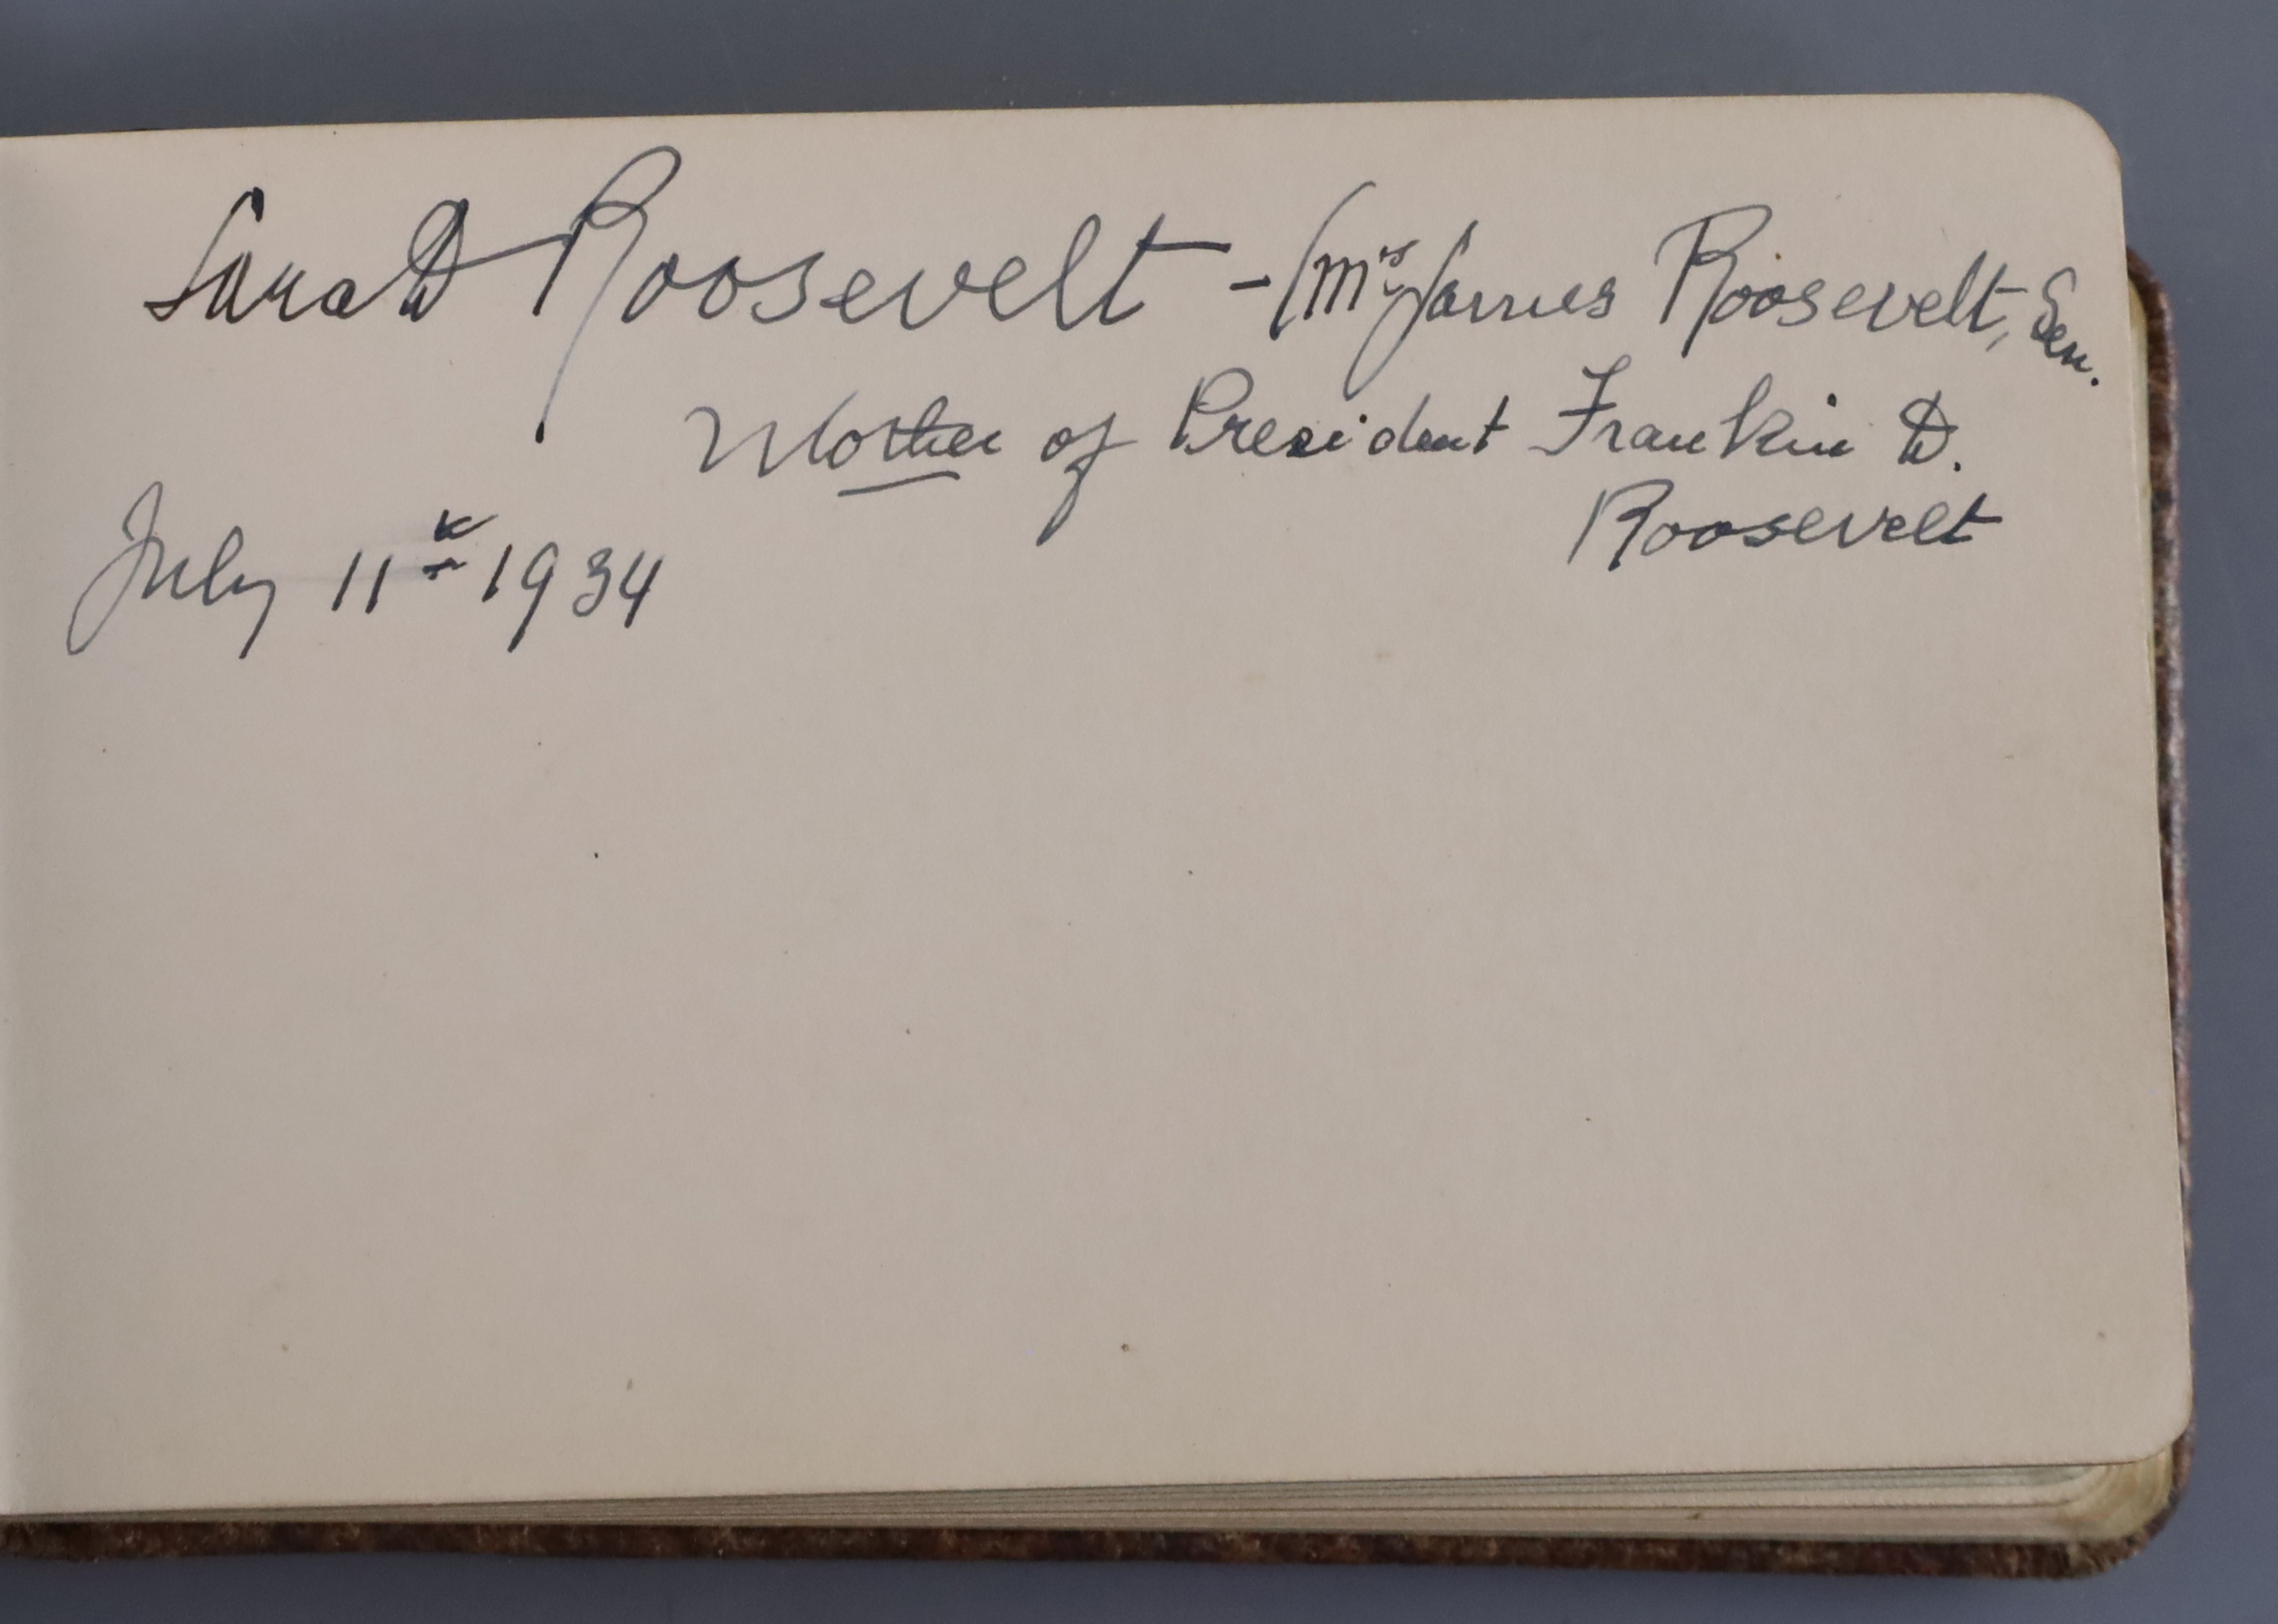 Sara D Roosevelt - (Mrs James Roosevelt, Sen.
Mother of President Franklin D.
Roosevelt
July 11th 1934